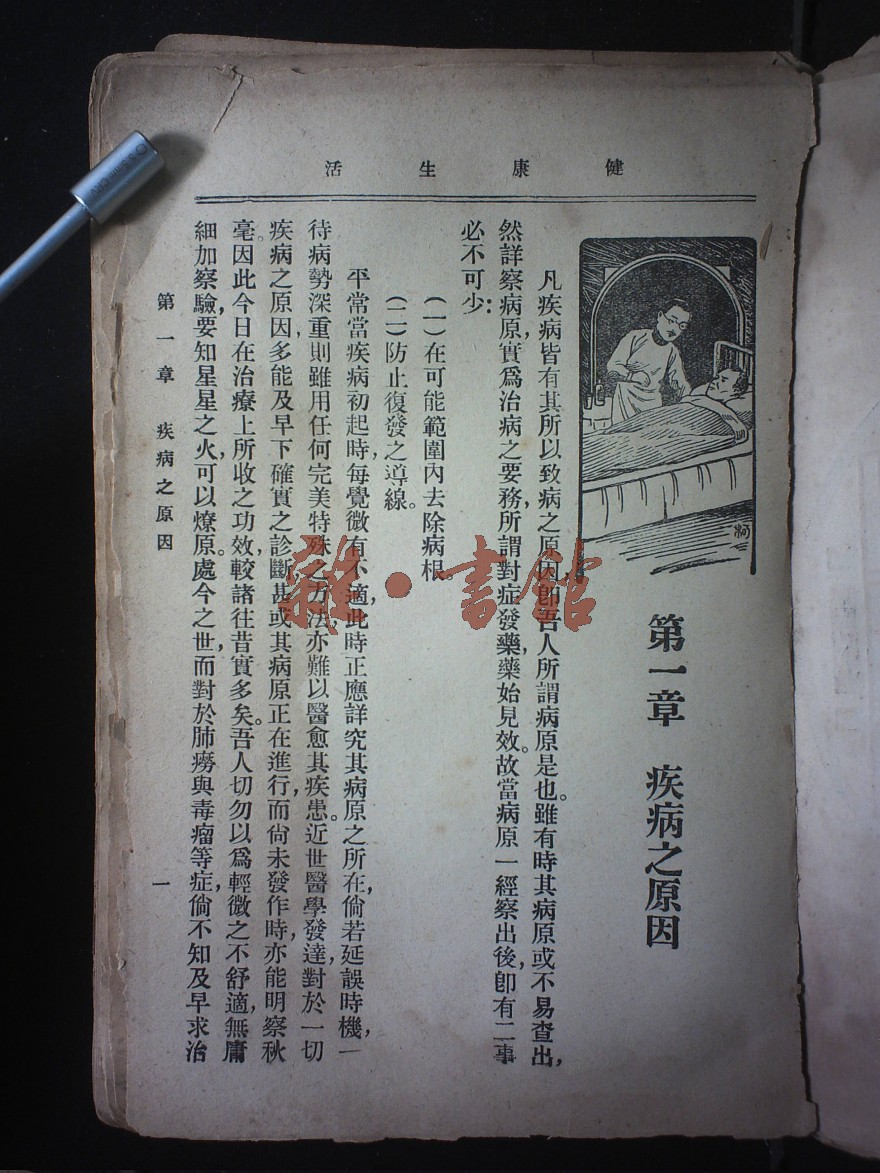 健康生活
第一章　疾病之原因
凡疾病皆有其所以致病之原因，卽吾人所謂病原是也。雖有時其病原或不易查出，
然詳察病原，實爲治病之要務，所謂對症發藥，藥始見效。故當病原一經察出後，卽有二事
必不可少：
（一）在可能範圍內去除病根
（二）防止復發之導線。
平常當疾病初起時，每覺微有不適，此時正應詳究其病原之所在，倘若延誤時機，一
待病勢深重，則雖用任何完美特殊之方法，亦難以醫愈其疾患。近世醫學發達，對於一切
疾病之原因，多能及早下確實之診斷，甚或其病原正在進行，而尙未發作時，亦能明察秋
毫。因此今日在治療上所收之功效，較諸往昔實多矣。吾人切勿以爲輕微之不舒適，無庸
細加察驗，要知星星之火，可以燎原。處今之世，而對於肺癆與毒瘤等症，倘不知及早求治
第一章　疾病之原因
一
雜·書館